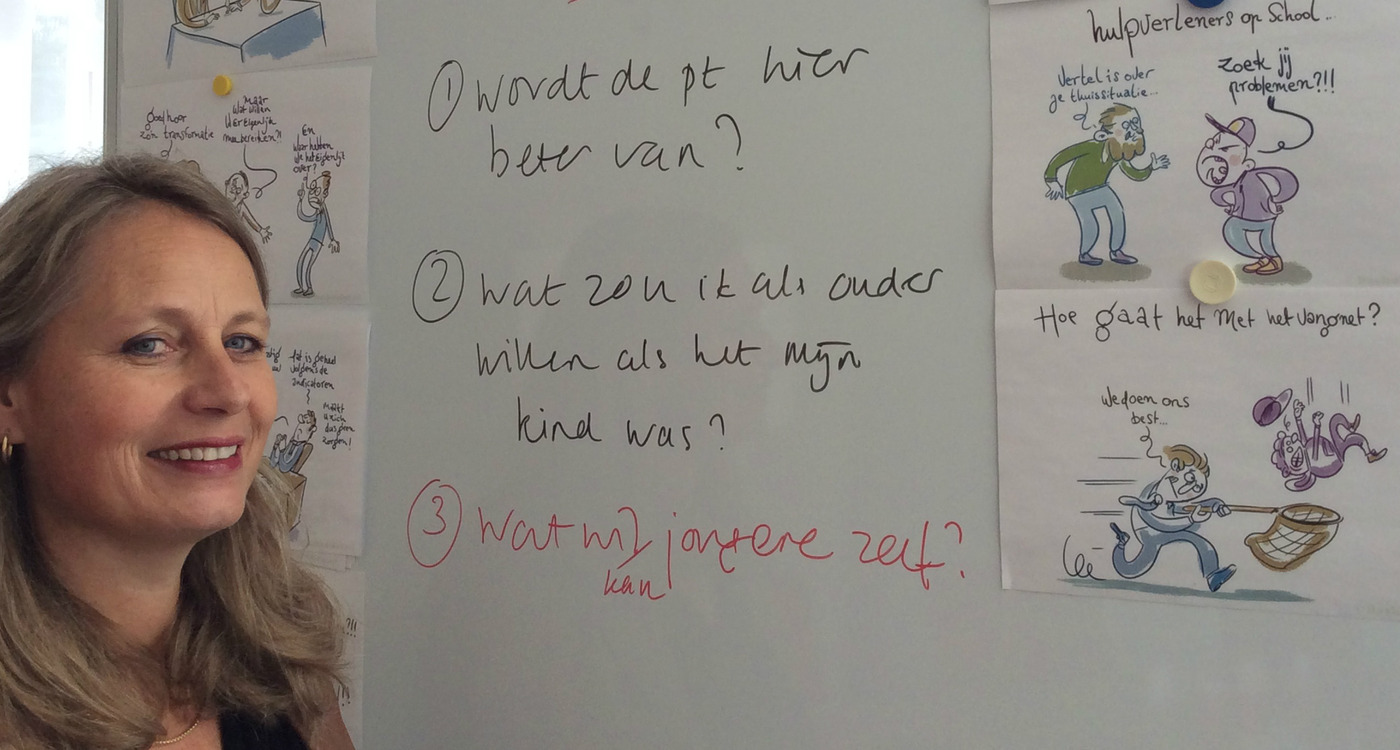 goed hoor
zo'n transformatie
Maar
wat willen
U er eigenlijk
mee bereiken?!
En
waar hebben
we het eigenlijk
over?
dat is geheel
volgens de
indicatoren
maakt
u zich
dus geen
zorgen!
?!!
① wordt de pt hier
beter van?
② wat zou ik als ouder
willen als het mijn
kind was?
③ wat wil jongere zelf?
kan
hulpverleners op School...
Vertel is over
je thuissituatie...
Zoek jij
problemen?!!
Hoe gaat het Met het vangnet?
We doen ons
best...